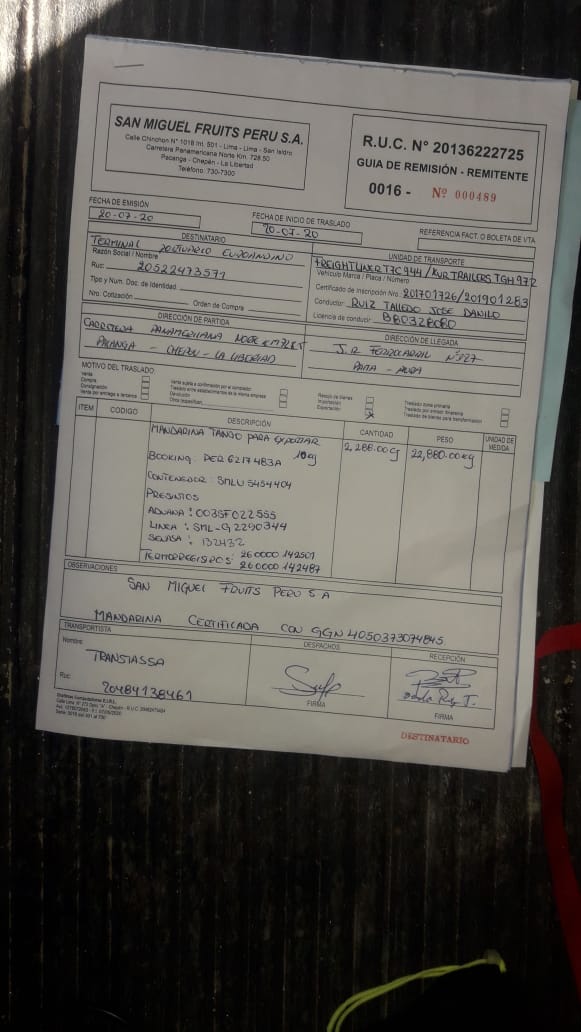 SAN MIGUEL FRUITS PERU S.A.
Calle Chinchon N° 1018 Int. 501 - Lima - Lima - San Isidro
Carretera Panamericana Norte Km. 728.50
Pacanga - Chepén - La Libertad
Teléfono: 730-7300
R.U.C. N° 20136222725
GUIA DE REMISIÓN - REMITENTE
0016 - Nº 000489
FECHA DE EMISIÓN
20-07-20
FECHA DE INICIO DE TRASLADO
20-07-20
REFERENCIA FACT. O BOLETA DE VTA
DESTINATARIO
TERMINAL PORTUARIO EUROANDINO
Razón Social / Nombre
Ruc: 20522473571
Tipo y Num. Doc. de Identidad
Nro. Cotización Orden de Compra
UNIDAD DE TRANSPORTE
FREIGHTLINER T7C944 / KVR TRAILERS TGH972
Vehículo Marca / Placa / Número
Certificado de Inscripción Nro. 201701726/201901283
Conductor: RUIZ TALLEDO JOSE DANILO
Licencia de conducir: B80328080
DIRECCIÓN DE PARTIDA
CARRETERA PANAMERICANA NORTE
PACANGA - CHEPEN - LA LIBERTAD
DIRECCIÓN DE LLEGADA
J.R FERROCARRIL Nº127
PAITA - PIURA
MOTIVO DEL TRASLADO:
Venta
Compra
Consignación
Venta por entrega a terceros
Venta sujeta a confirmación por el comprador
Traslado entre establecimientos de la misma empresa
Devolución
Otros
Recojo de bienes
Importación
Exportación X
Traslado zona primaria
Traslado por emisor itinerante
Traslado de bienes para transformación
ITEM CODIGO DESCRIPCIÓN CANTIDAD PESO UNIDAD DE MEDIDA
MANDARINA TANGO PARA EXPORTAR 2,288.00 22,880.00 kg
BOOKING PER6217483A
CONTENEDOR: SMLU 5454404
PRESINTOS
ADUANA: 0035F022555
LINEA: SML-G2290344
SENASA: 132432
TERMOREGISTROS: 260000 142501
260000 142487
OBSERVACIONES
SAN MIGUEL FRUITS PERU S A
MANDARINA CERTIFICADA CON GGN 4050373074845
TRANSPORTISTA
Nombre: TRANSTASSA
Ruc: 20484138461
DESPACHOS
FIRMA
RECEPCIÓN
FIRMA
DESTINATARIO